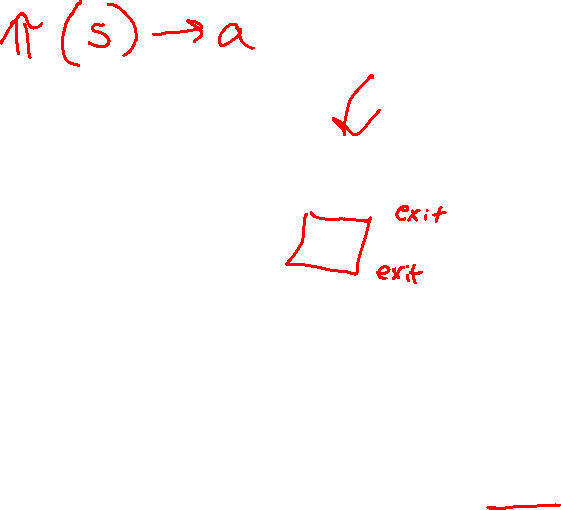 π(s) → a
exit
exit